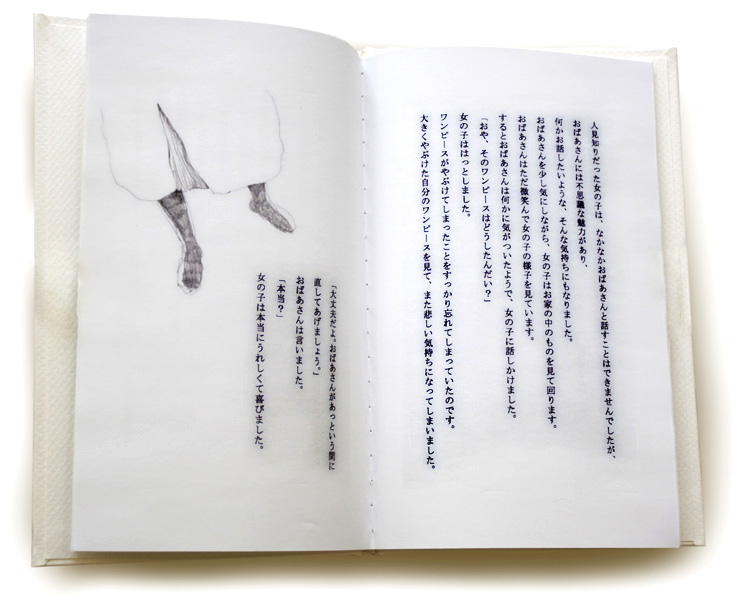 人見知りだった女の子は、なかなかおばあさんと話すことはできませんでしたが、
おばあさんには不思議な魅力があり、
何かお話したいような、そんな気持ちにもなりました。
おばあさんを少し気にしながら、女の子はお家の中のものを見て回ります。
おばあさんはただ微笑んで女の子の様子を見ています。
するとおばあさんは何かに気がついたようで、女の子に話しかけました。
「おや、そのワンピースはどうしたんだい？」
女の子ははっとしました。
ワンピースがやぶけてしまったことをすっかり忘れてしまっていたのです。
大きくやぶけた自分のワンピースを見て、また悲しい気持ちになってしまいました。
「大丈夫だよ。おばあさんがあっという間に
直してあげましょう。」
おばあさんは言いました。
「本当？」
女の子は本当にうれしくて喜びました。